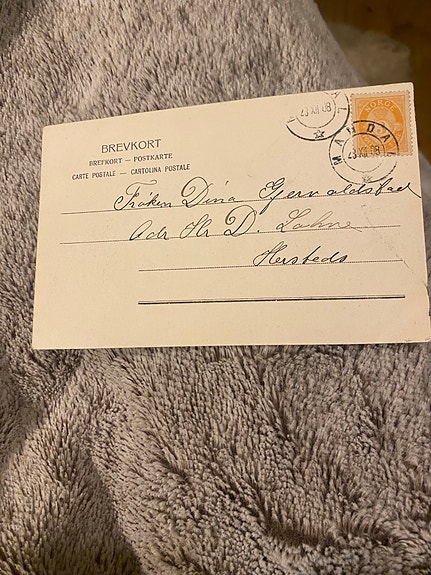 BREVKORT
BREFKORT — POSTKARTE
CARTE POSTALE — CARTOLINA POSTALE
23 XII 08
NORGE
MANDAL
23 XII 08
Frøken Dina Gjervoldstad
Adr Hr D. Lohne
Hersteds